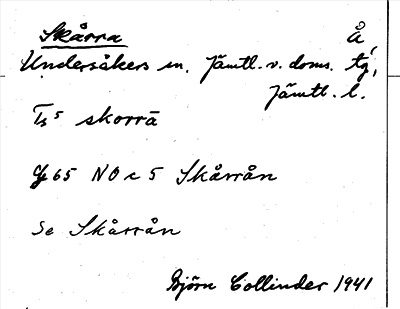 Skårra Å
Undersåkers sn. Jämtl. v. doms. tg,
Jämtl. l.
Ts5 skorrā
G65 NO c 5 Skårrån
Se Skårrån
Björn Collinder 1941